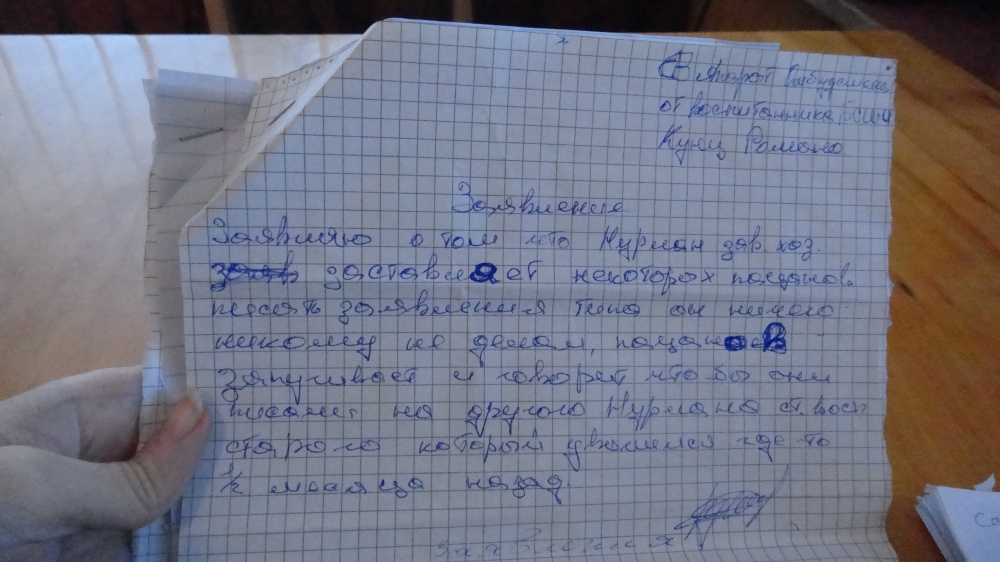 от воспитанника
Кунц Романа
Заявление
Заявляю о том что Нурлан зав. хоз.
заставляет некоторых пацанов
писать заявления типа он ничего
никому не делал, пацанов
запугивает и говорит что бы они
писали на другого Нурлана ст. восп
старого который уволился где то
1/2 месяца назад.
заявления